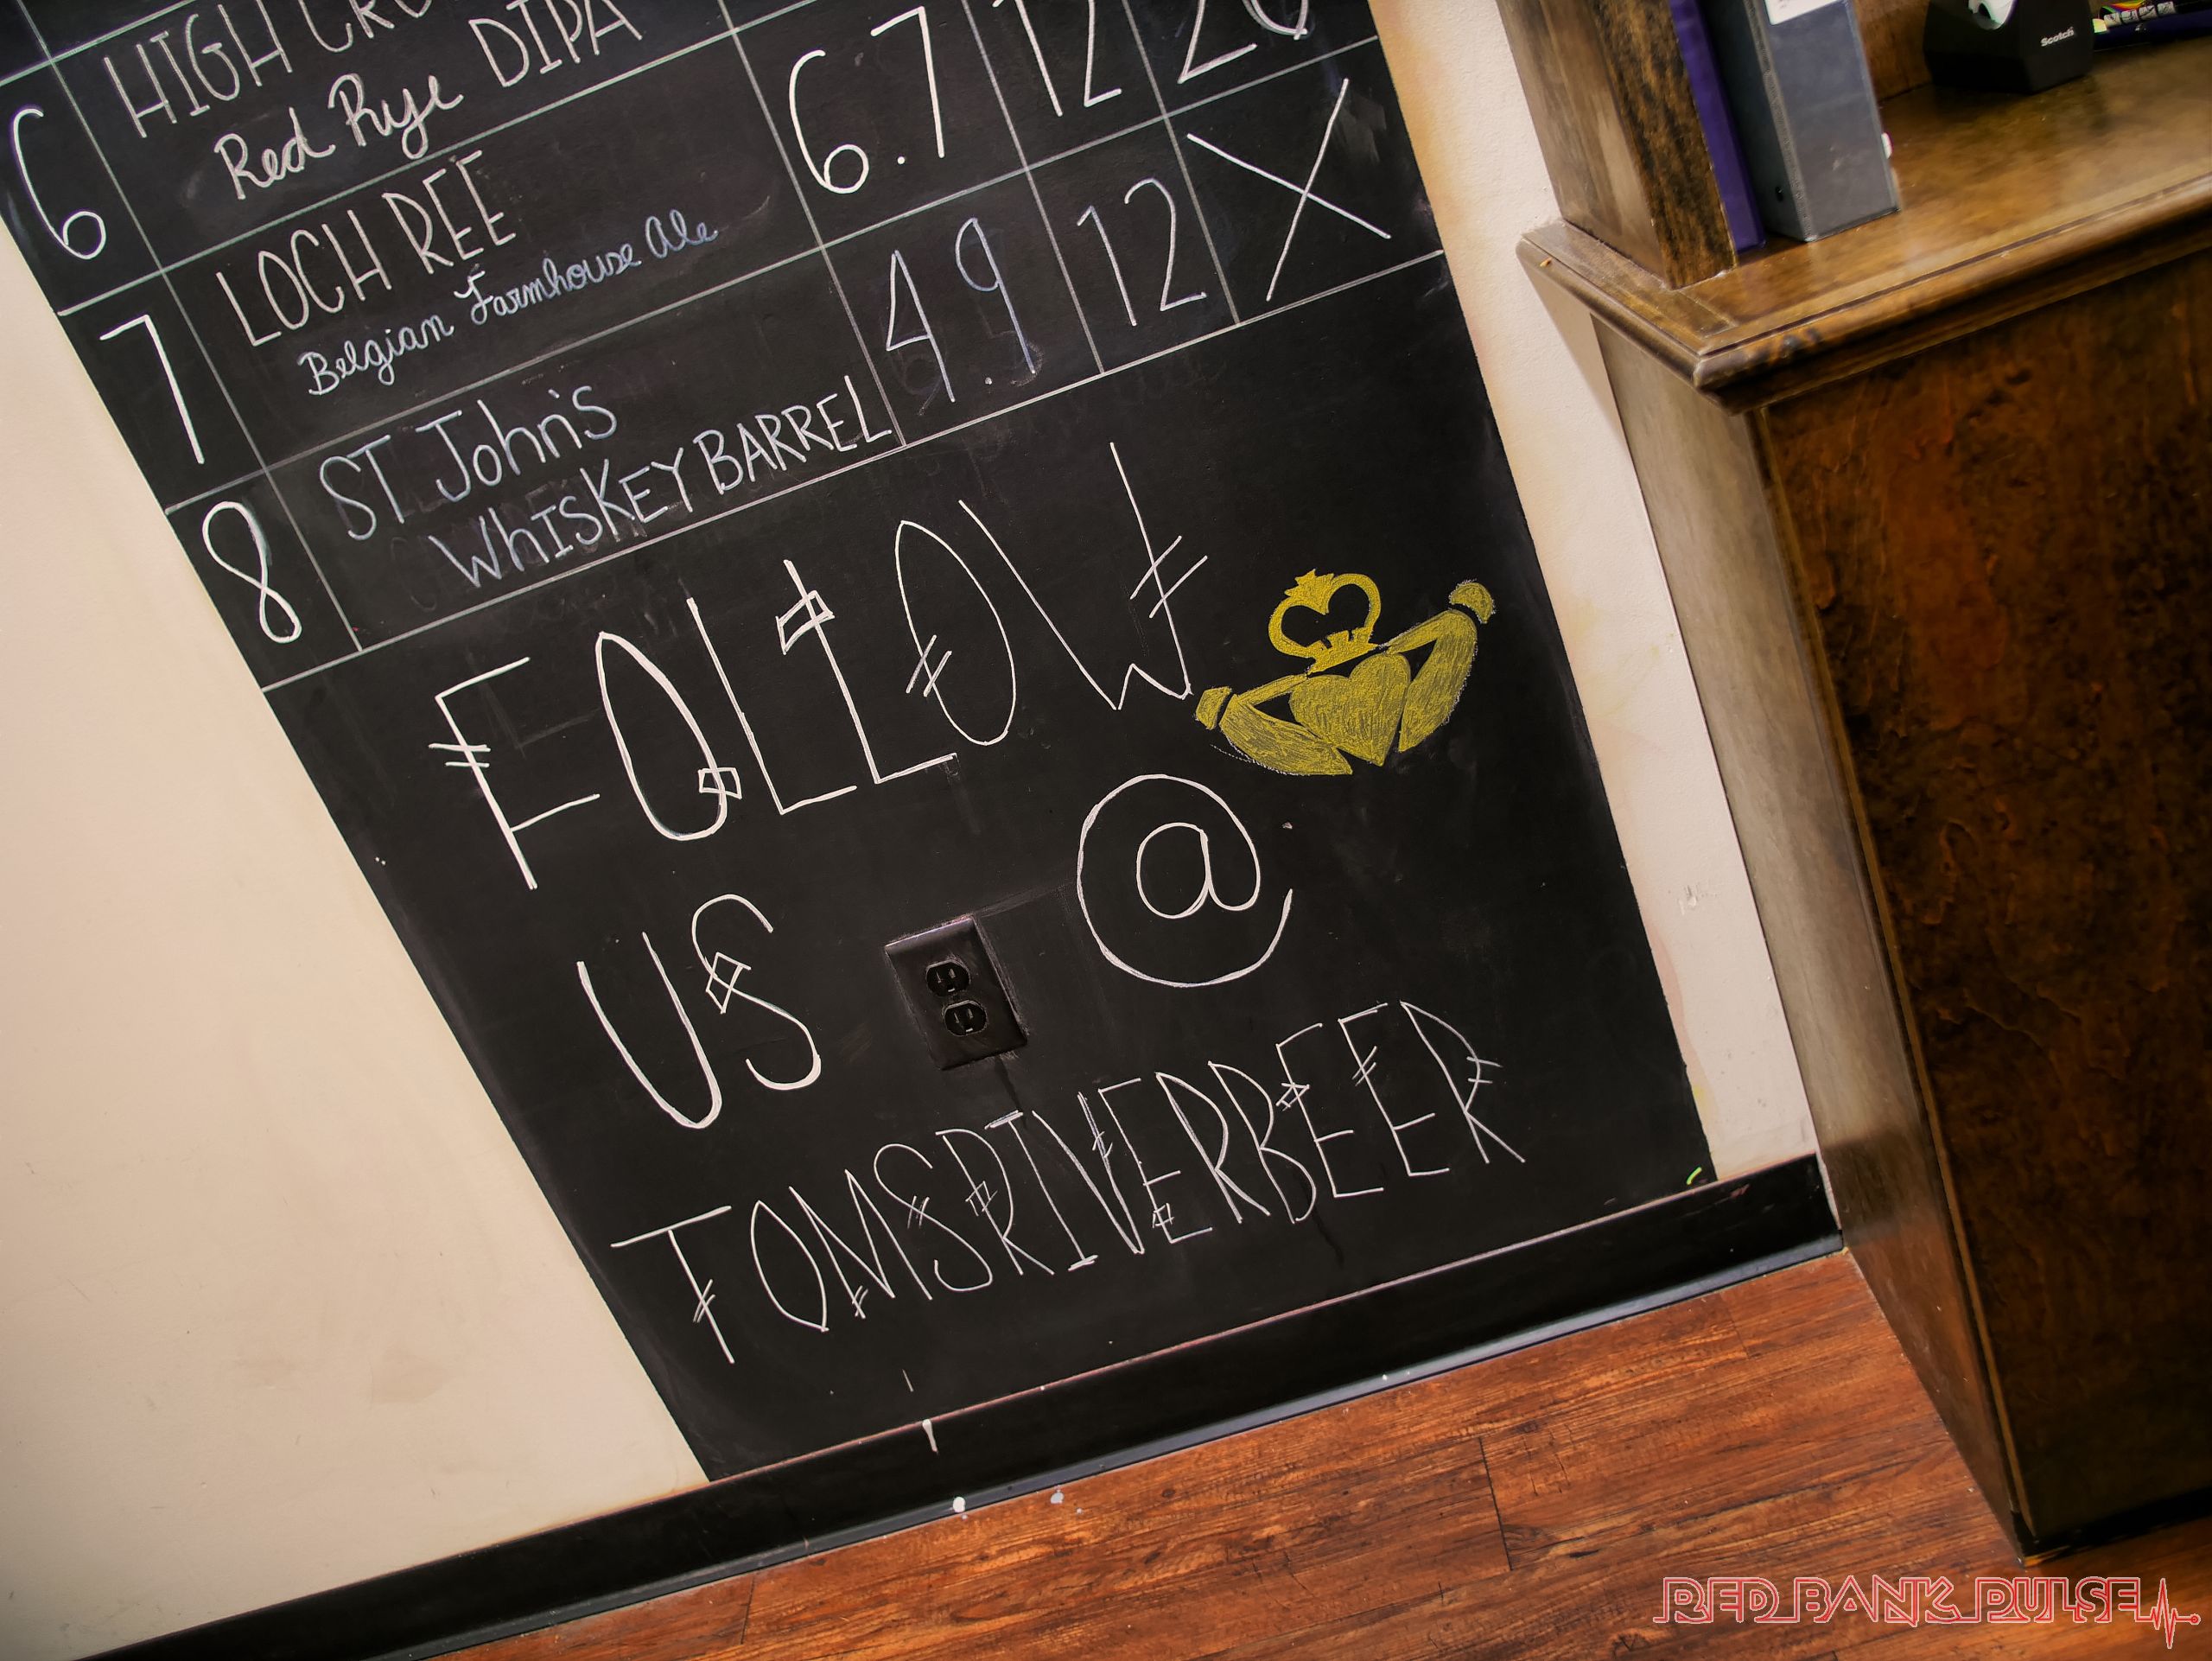 6 HIGH
Red Rye DIPA
7 LOCH REE 6.7 12 20
Belgian Farmhouse Ale
8 ST JOHN'S 4.9 12 X
WHISKEY BARREL
FOLLOW
US @
TOMSRIVERBEER
Scotch
RED BANK PULSE